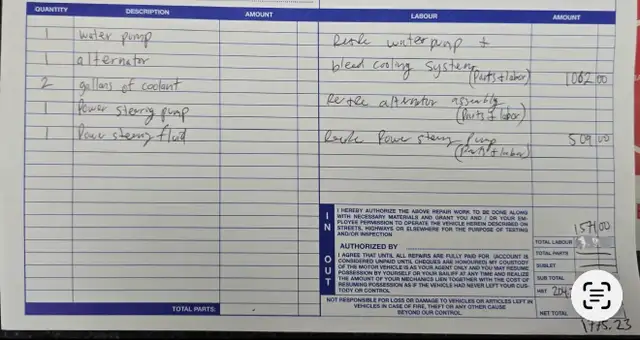 QUANTITY DESCRIPTION AMOUNT LABOUR AMOUNT
1 water pump
1 alternator
2 gallons of coolant
1 Power steering pump
1 Power steering fluid
water pump +
bleed cooling system
(Parts + labor) 1062 00
alternator assembly
(Parts + labor)
Power steering Pump 509 00
(Parts + labor)
IN OUT
I HEREBY AUTHORIZE THE ABOVE REPAIR WORK TO BE DONE ALONG
WITH NECESSARY MATERIALS AND GRANT YOU AND / OR YOUR EM-
PLOYEE PERMISSION TO OPERATE THE VEHICLE HEREIN DESCRIBED ON
STREETS, HIGHWAYS OR ELSEWHERE FOR THE PURPOSE OF TESTING
AND/OR INSPECTION
AUTHORIZED BY
I AGREE THAT UNTIL ALL REPAIRS ARE FULLY PAID FOR (ACCOUNT IS
CONSIDERED UNPAID UNTIL CHEQUES ARE HONOURED) MY CUSTODY
OF THE MOTOR VEHICLE IS AS YOUR AGENT ONLY AND YOU MAY RESUME
POSSESSION BY YOURSELF OR YOUR BAILIFF AT ANY TIME AND REALIZE
THE AMOUNT OF YOUR MECHANICS LIEN TOGETHER WITH THE COST OF
RESUMING POSSESSION AS IF THE VEHICLE HAD NEVER LEFT YOUR CUS-
TODY OR CONTROL.
NOT RESPONSIBLE FOR LOSS OR DAMAGE TO VEHICLES OR ARTICLES LEFT IN
VEHICLES IN CASE OF FIRE, THEFT OR ANY OTHER CAUSE
BEYOND OUR CONTROL.
1571 00
TOTAL LABOUR
TOTAL PARTS
SUBLET
SUB TOTAL
HST
NET TOTAL
1775.23
TOTAL PARTS: